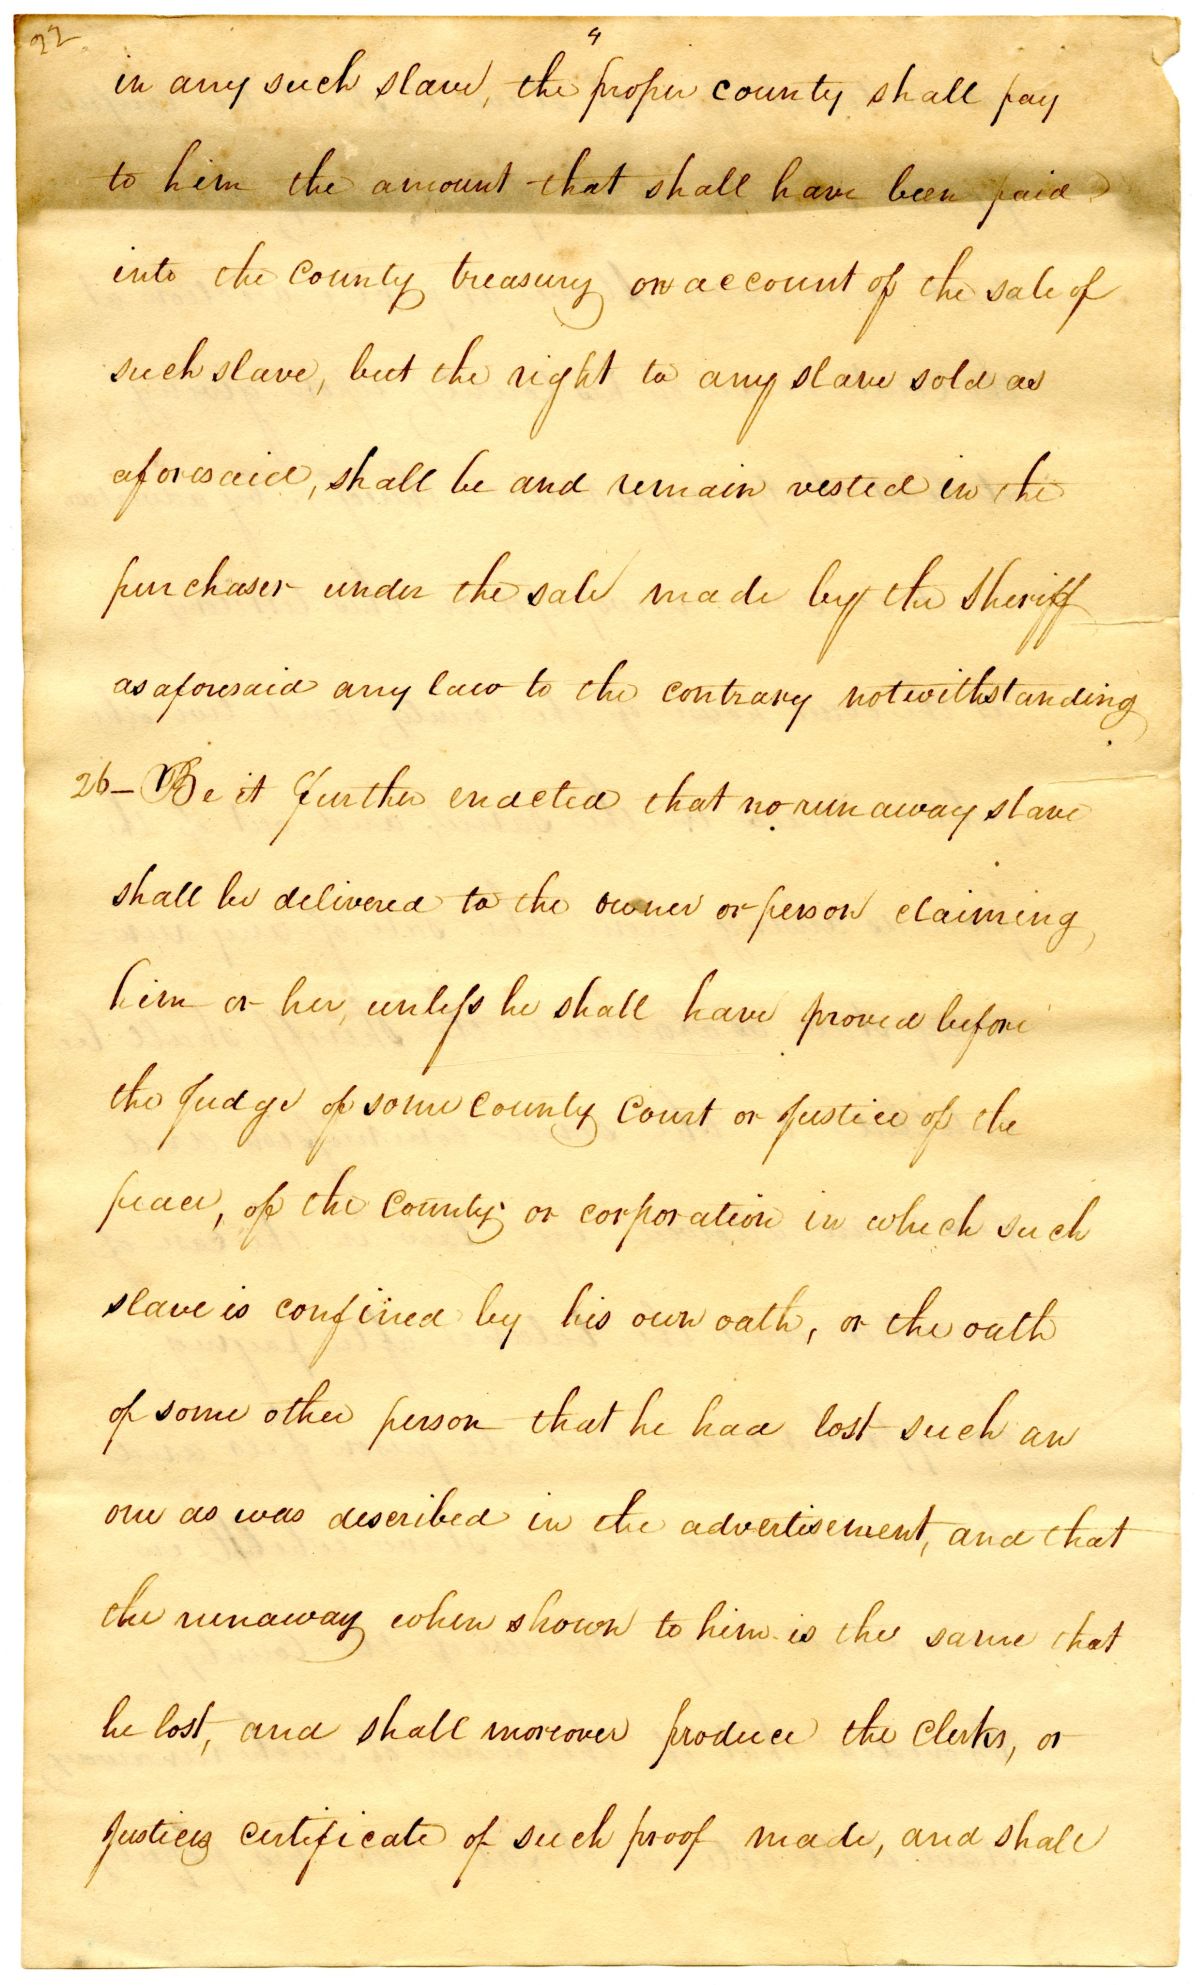 22
4
in any such slave, the proper county shall pay
to him the amount that shall have been paid
into the county treasury on account of the sale of
such slave, but the right to any slave sold as
aforesaid, shall be and remain vested in the
purchaser under the sale made by the Sheriff
as aforesaid any law to the contrary notwithstanding.
26— Be it further enacted that no runaway slave
shall be delivered to the owner or person claiming
him or her, unless he shall have proved before
the Judge of some County Court or Justice of the
peace, of the County or corporation in which such
slave is confined by his own oath, or the oath
of some other person that he had lost such an
one as was described in the advertisement, and that
the runaway when shown to him is the same that
he lost, and shall moreover produce the Clerks, or
Justices certificate of such proof made, and shall